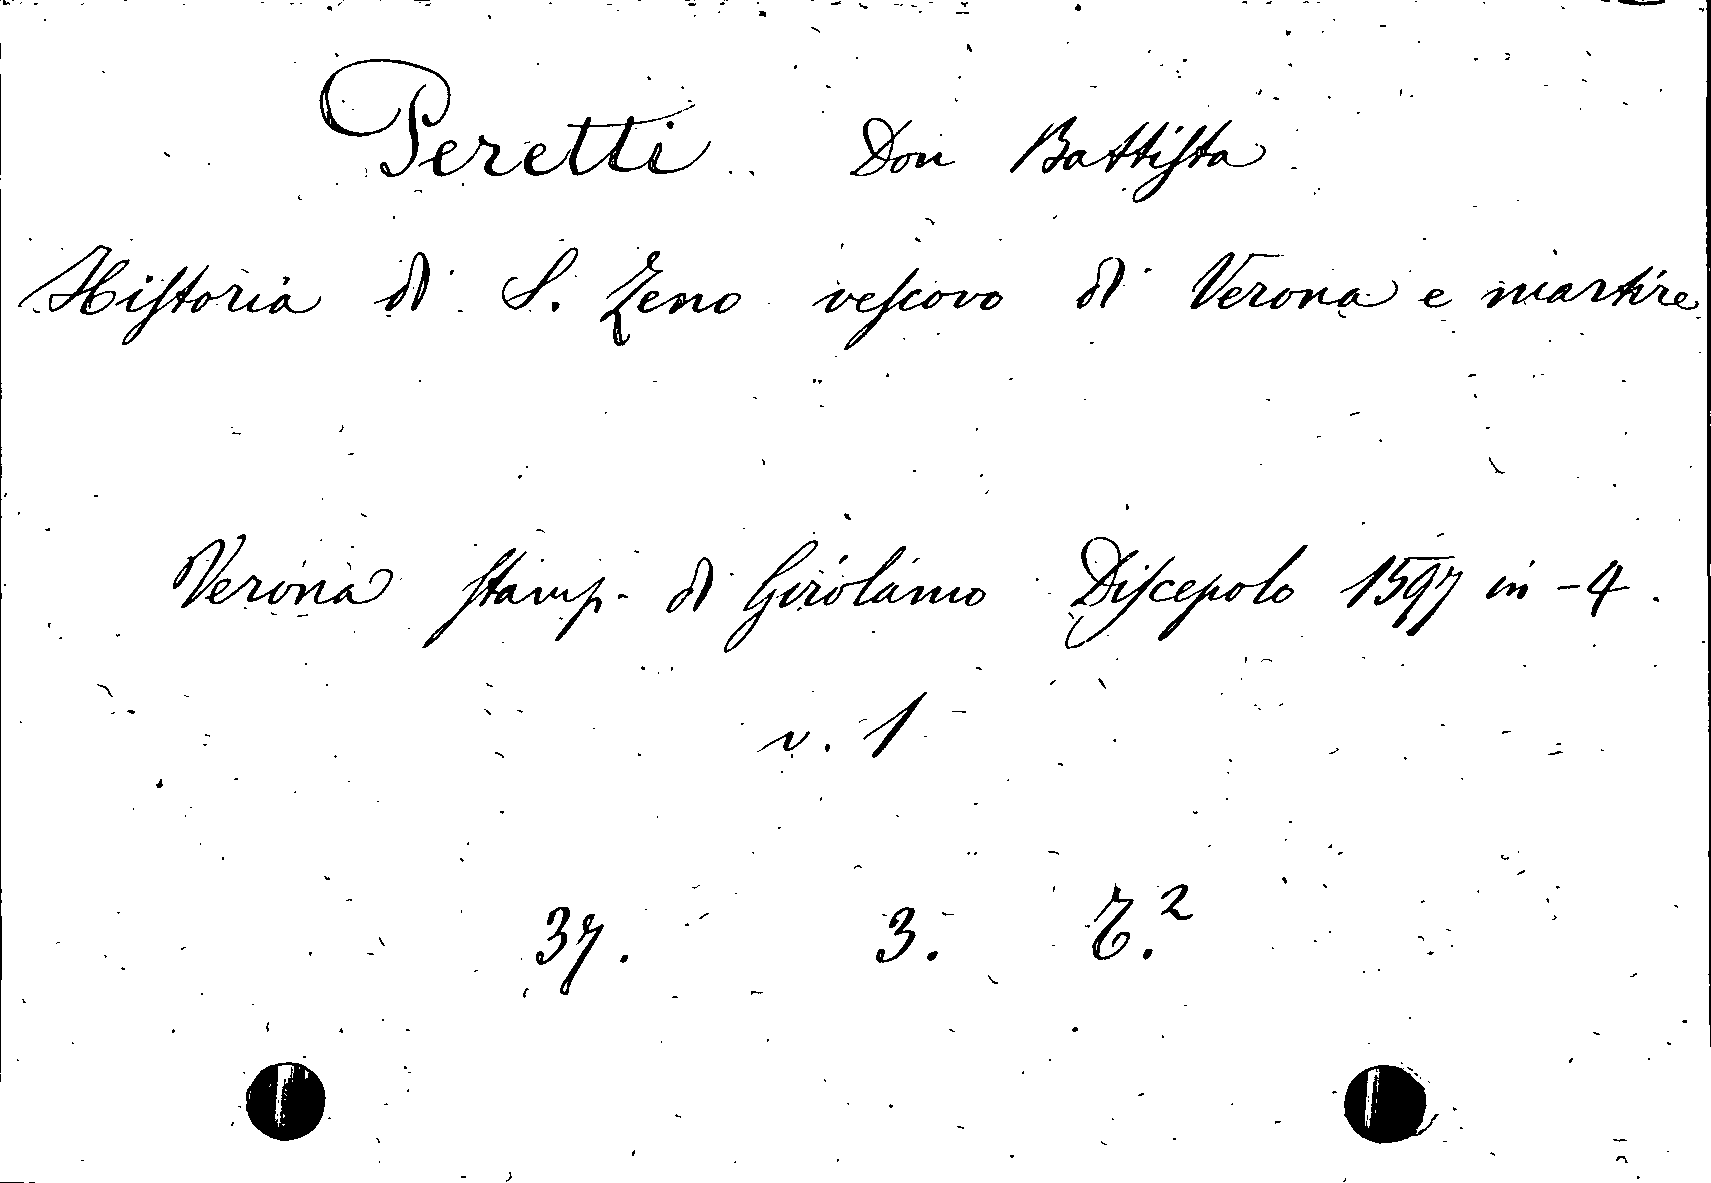 Peretti Don Battiſta
Hiſtoria di S. Zeno veſcovo di Verona e martire
Verona ſtamp. di Girolamo Diſcepolo 1597 in-4.
v. 1
37. 3. T.²